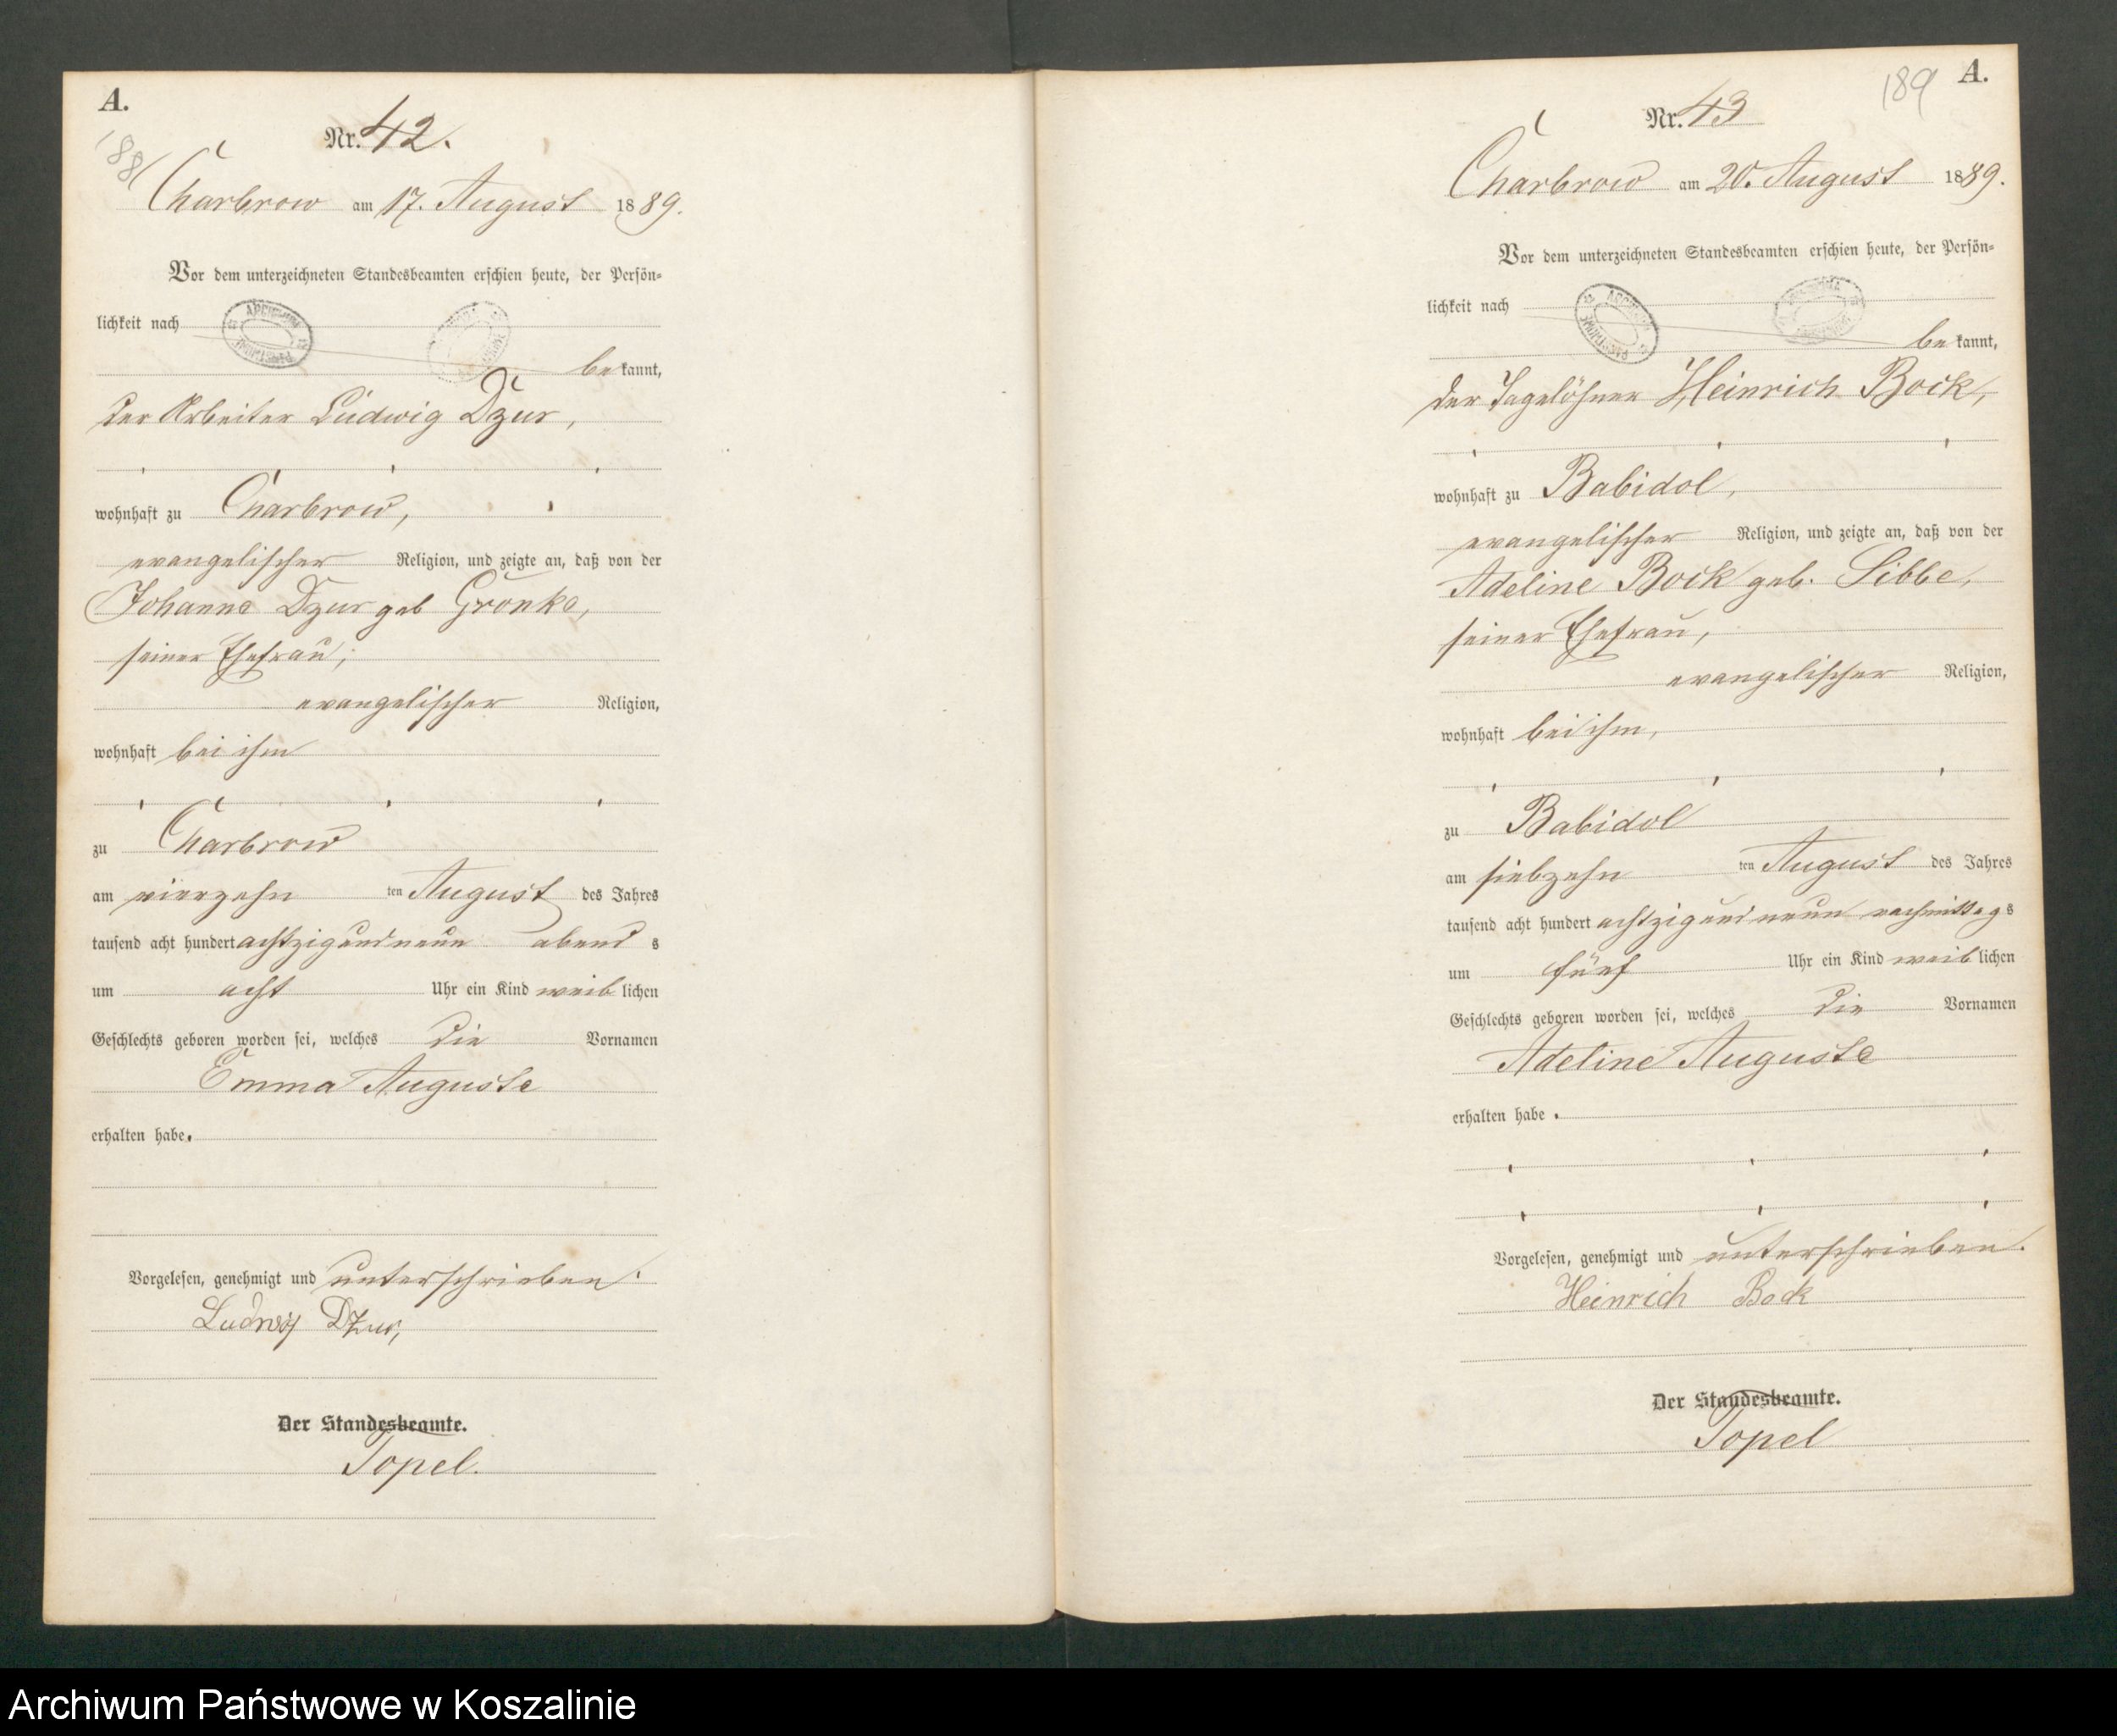 A.
188
Nr. 42.
Charbrow am 17. August 1889.
Vor dem unterzeichneten Standesbeamten erschien heute, der Persön-
lichkeit nach
bekannt,
der Arbeiter Ludwig Dzur,
wohnhaft zu Charbrow,
evangelischer Religion, und zeigte an, daß von der
Johanne Dzur geb Gronke,
seiner Ehefrau,
evangelischer Religion,
wohnhaft bei ihm
zu Charbrow
am vierzehn ten August des Jahres
tausend acht hundert achtzig und neun abends
um acht Uhr ein Kind weiblichen
Geschlechts geboren worden sei, welches die Vornamen
Emma Auguste
erhalten habe.
Vorgelesen, genehmigt und unterschrieben.
Ludwig Dzur,
Der Standesbeamte.
Topel.
189
A.
Nr. 43
Charbrow am 20. August 1889.
Vor dem unterzeichneten Standesbeamten erschien heute, der Persön-
lichkeit nach
bekannt,
der Tagelöhner Heinrich Bock,
wohnhaft zu Babidol,
evangelischer Religion, und zeigte an, daß von der
Adeline Bock geb. Libbe,
seiner Ehefrau,
evangelischer Religion,
wohnhaft bei ihm,
zu Babidol
am siebzehn ten August des Jahres
tausend acht hundert achtzig und neun nachmittags
um fünf Uhr ein Kind weiblichen
Geschlechts geboren worden sei, welches die Vornamen
Adeline Auguste
erhalten habe.
Vorgelesen, genehmigt und unterschrieben.
Heinrich Bock
Der Standesbeamte.
Topel
Archiwum Państwowe w Koszalinie